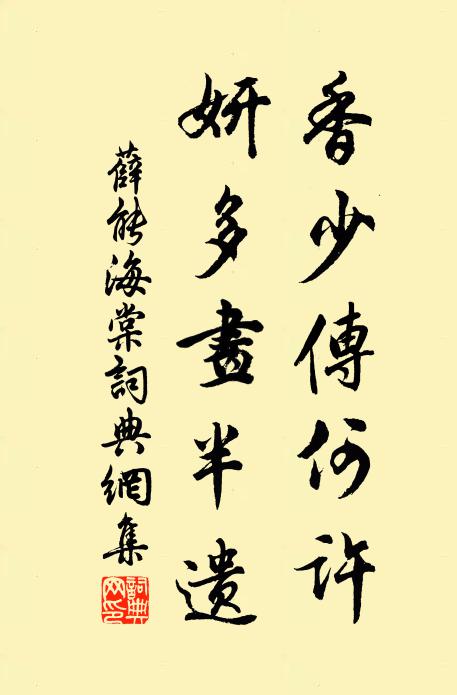 香少傳何許
妍多畫半遺
薛能海棠詞典網集
詞典網印